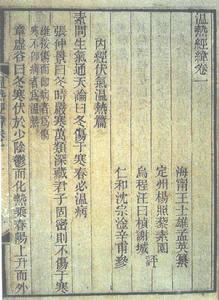 溫熱經緯卷一
海甯王士雄孟英纂
定州楊照藜素園
評
烏程汪曰楨謝城
仁和沈宗淦辛甫參
內經伏氣溫熱篇
素問生氣通天論曰冬傷于寒春必溫病
張仲景曰冬時嚴寒萬類深藏君子固密則不傷于寒
章虛谷曰冬寒伏於少陰鬱而化熱乘春陽上升而外